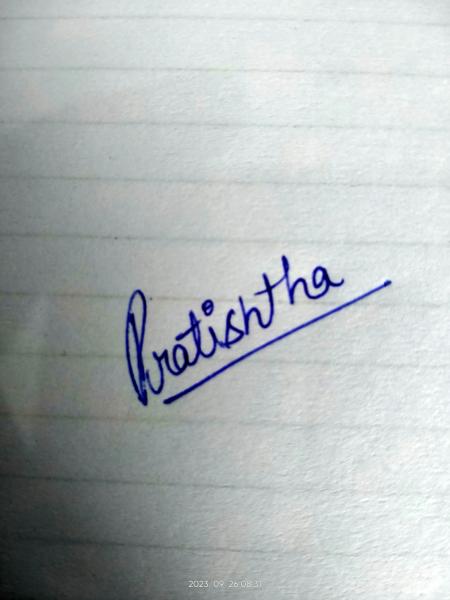 Pratishtha
2023. 09. 26 08:31